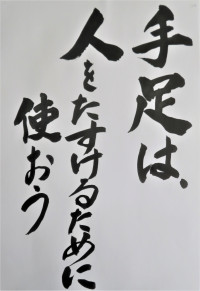 手足は、
人をたすけるために
使おう